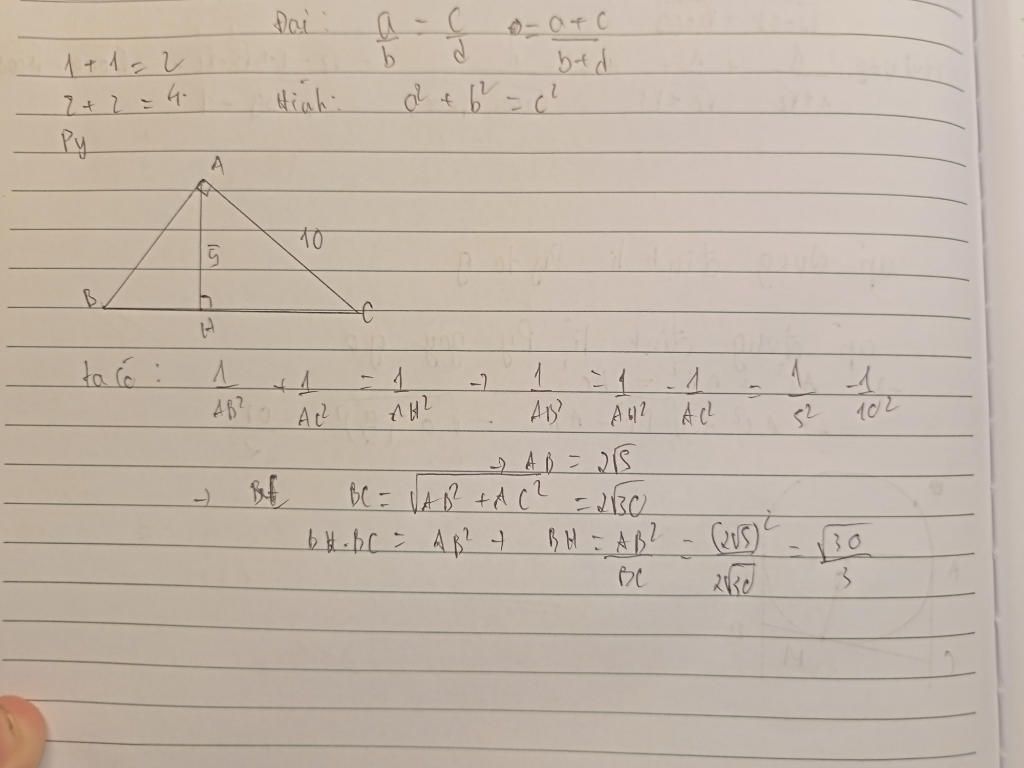 Đại: a/b = c/d = (a+c)/(b+d)
1+1=2
2+2=4. Hình: a² + b² = c²
Py
A
10
5
B H C
ta có: 1/AB² + 1/AC² = 1/AH² → 1/AB² = 1/AH² - 1/AC² = 1/5² - 1/10²
→ AB = 2√5
→ BC = √(AB² + AC²) = 2√30
BH.BC = AB² → BH = AB²/BC = (2√5)²/(2√30) = √30/3